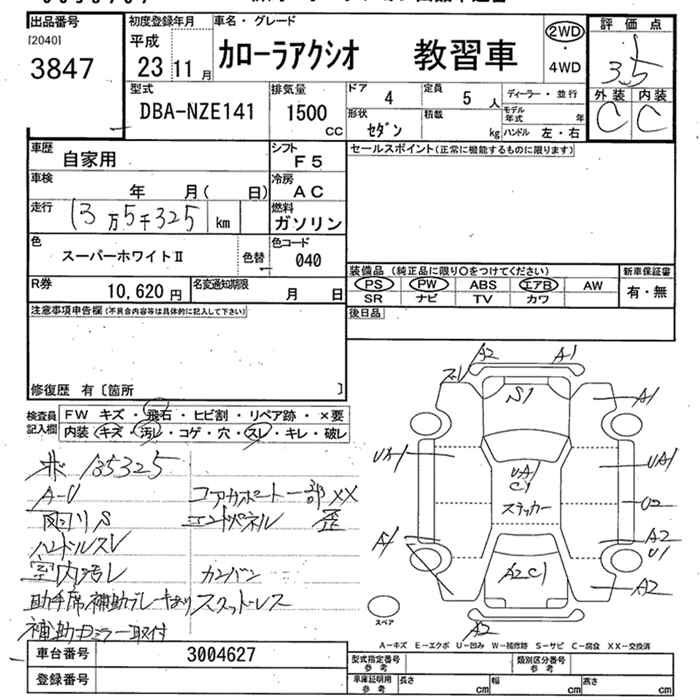 出品番号
[2040]
3847
初度登録年月
平成
23 11月
車名・グレード
カローラアクシオ 教習車
2WD
・
4WD
評価点
3.5
外装 内装
C C
型式
DBA-NZE141
排気量
1500
CC
ドア
4
定員
5 人
ディーラー・並行
形状
セダン
積載
kg
モデル年式 年
ハンドル 左・右
車歴
自家用
シフト
F5
車検
年 月( 日)
冷房
AC
走行
13万5千325 km
燃料
ガソリン
色
スーパーホワイトⅡ
色替
色コード
040
R券
10,620円
名変通知期限
月 日
セールスポイント(正常に機能するものに限ります)
装備品 (純正品に限り○をつけてください)
PS PW ABS エアB AW
SR ナビ TV カワ
新車保証書
有・無
後日品
注意事項申告欄(不具合内容等は具体的に記入して下さい)
修復歴 有〔箇所 〕
検査員記入欄
FW キズ・飛石・ヒビ割・リペア跡・×要
内装・キズ・汚レ・コゲ・穴・スレ・キレ・破レ
135325
A-U
コアサポート一部XX
エンドパネル 歪
ハンドルスレ
室内汚レ
カンバン
助手席補助ブレーキあり
スペアタイヤレス
補助ミラー取付
A2 A1
S1
A1
UA1
UA1
UA1
C1
ステッカー
U2
A1
A2
U1
A2C1
A2
A2
スペア
A-キズ E-エクボ U-凹み W-補修跡 S-サビ C-腐食 XX-交換済
車台番号
3004627
登録番号
型式指定番号
参考
類別区分番号
参考
車庫証明用
参考
長さ cm
幅 cm
高さ cm